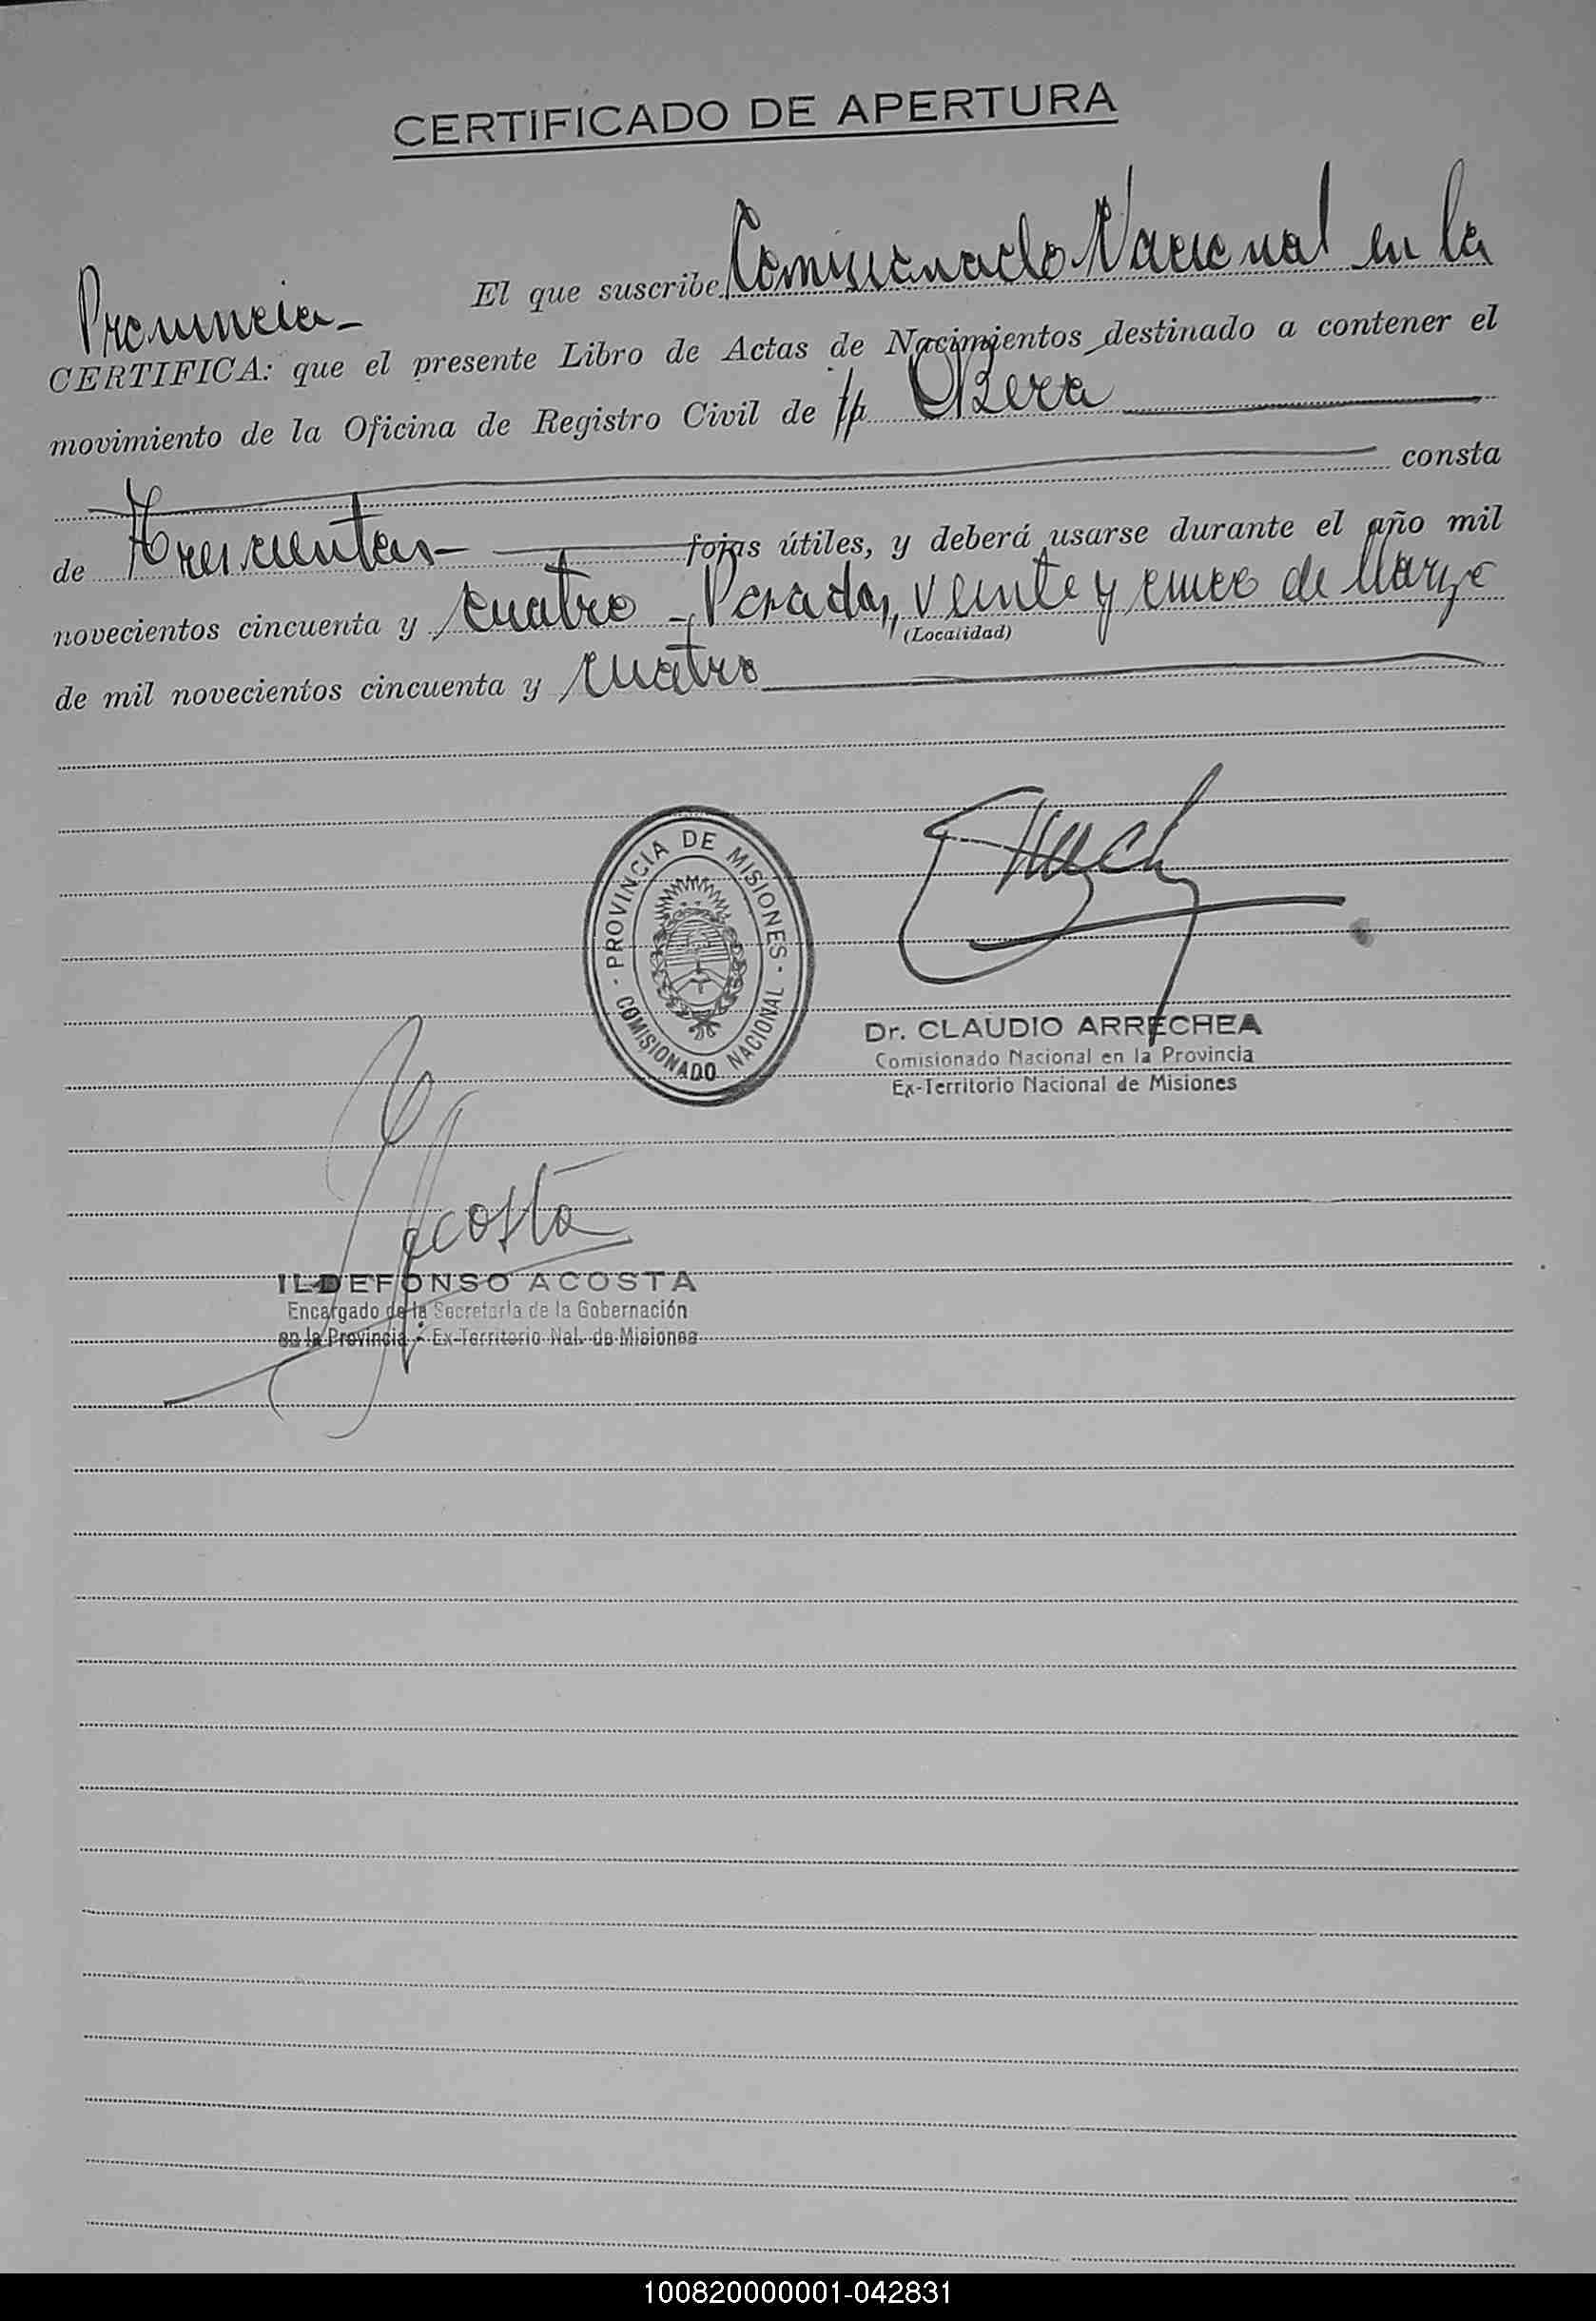 CERTIFICADO DE APERTURA
El que suscribe Comisionado Nacional en la
Provincia-
CERTIFICA: que el presente Libro de Actas de Nacimientos destinado a contener el
movimiento de la Oficina de Registro Civil de Obera
consta
de Trescientas- fojas útiles, y deberá usarse durante el año mil
novecientos cincuenta y cuatro - Posadas, veinte y cinco de Marzo
(Localidad)
de mil novecientos cincuenta y cuatro
PROVINCIA DE MISIONES
COMISIONADO NACIONAL
Dr. CLAUDIO ARRECHEA
Comisionado Nacional en la Provincia
Ex-Territorio Nacional de Misiones
Acosta
ILDEFONSO ACOSTA
Encargado de la Secretaría de la Gobernación
en la Provincia - Ex-Territorio Nal. de Misiones
100820000001-042831